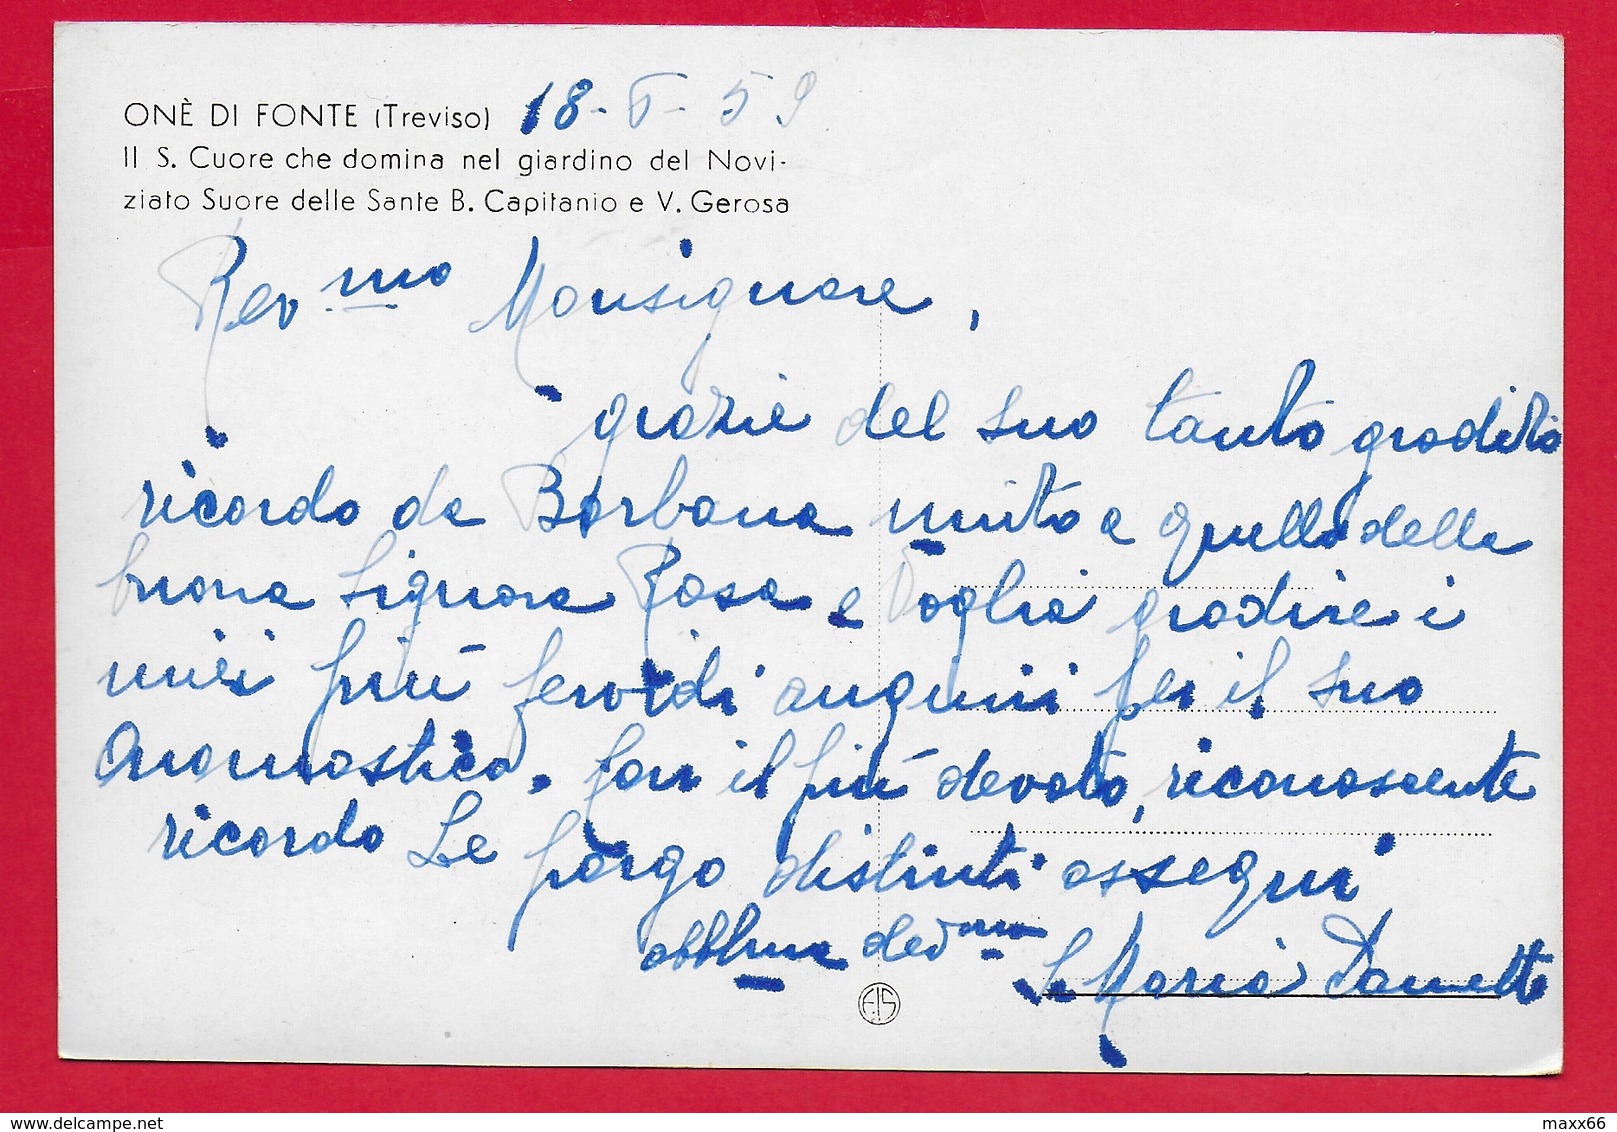 ONÈ DI FONTE (Treviso) 18-5-59
Il S. Cuore che domina nel giardino del Novi-
ziato Suore delle Sante B. Capitanio e V. Gerosa
Rev.mo Monsignore,
grazie del suo tanto gradito
ricordo da Barbana unito a quello della
buona Signora Rosa e Voglia gradire i
miei più fervidi auguri per il suo
Onomastico. Con il più devoto, riconoscente
ricordo Le porgo distinti ossequi
obbl.ma dev.ma Sr Maria
F.I.S
delcampe.net
maxx66